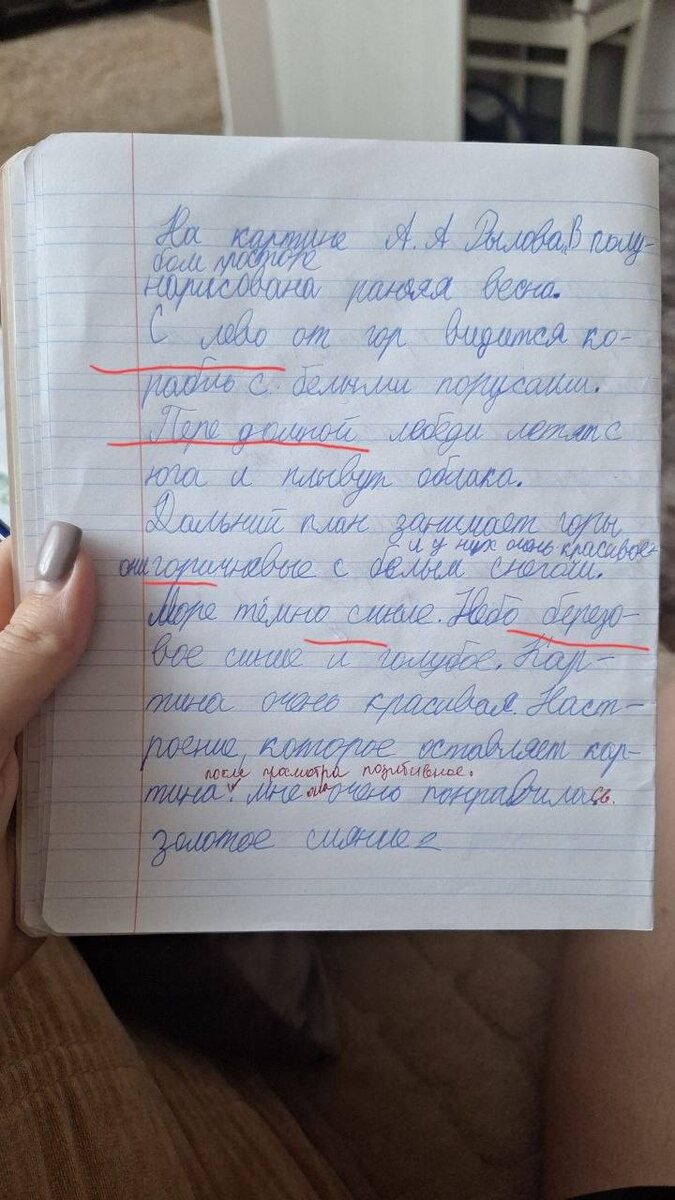 На картине А. А Рылова „В голу-
бом простоте
нарисована ранняя весна.
С лево от гор видится ко-
рабль с белыми порусами.
Пере домной лебеди летят с
юга и плывут облака.
Дальний план занимает горы
и у них очень красивое
они горичневые с белым снегом.
Море тёмно синие. Небо березо-
вое синие и голубое. Кар-
тина очень красивая. Наст-
роение, которое оставляет кар-
после просмотра позитивное.
тина. Мне она очень понравилась.
золотое сияние